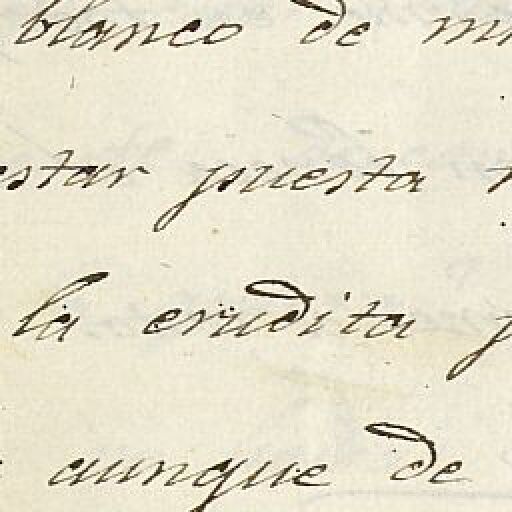 blanco de
estar puesta
la erudita
aunque de